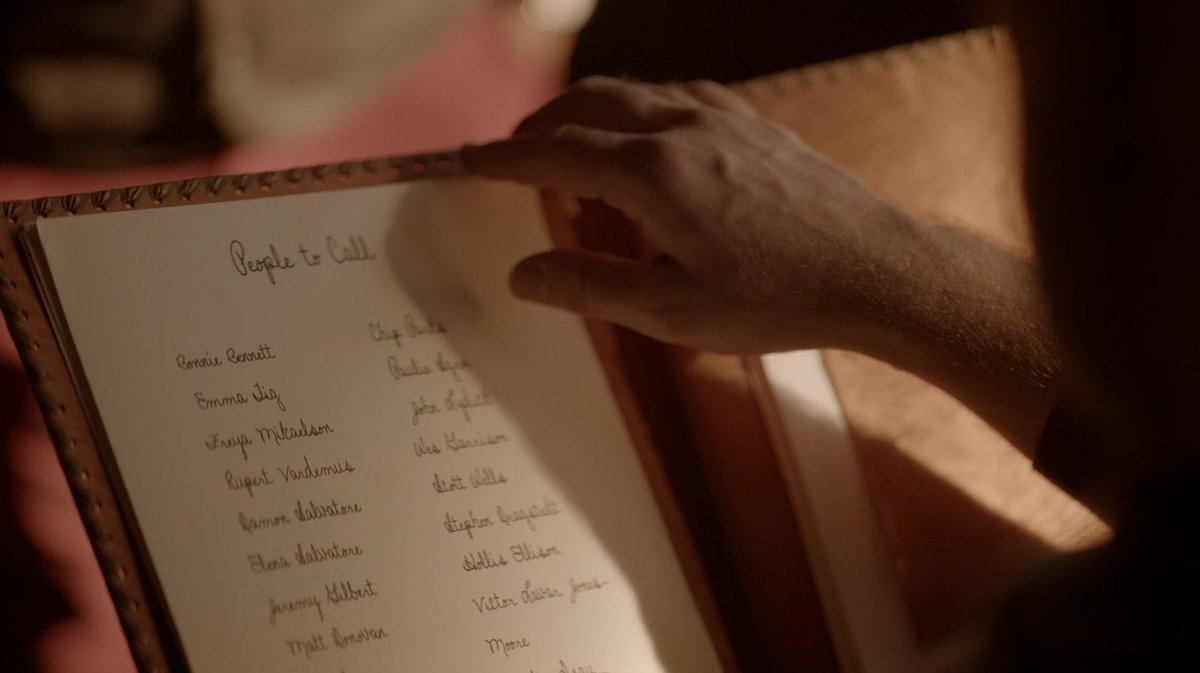 People to Call
Bonnie Bennett
Emma Tig
Freya Mikaelson
Rupert Vardemus
Damon Salvatore
Elena Salvatore
Jeremy Gilbert
Matt Donovan
Chip
Paulie
John
Wes Garrison
Scott Wells
Stephen
Hollis Ellison
Viltor Lavar Jones
Moore